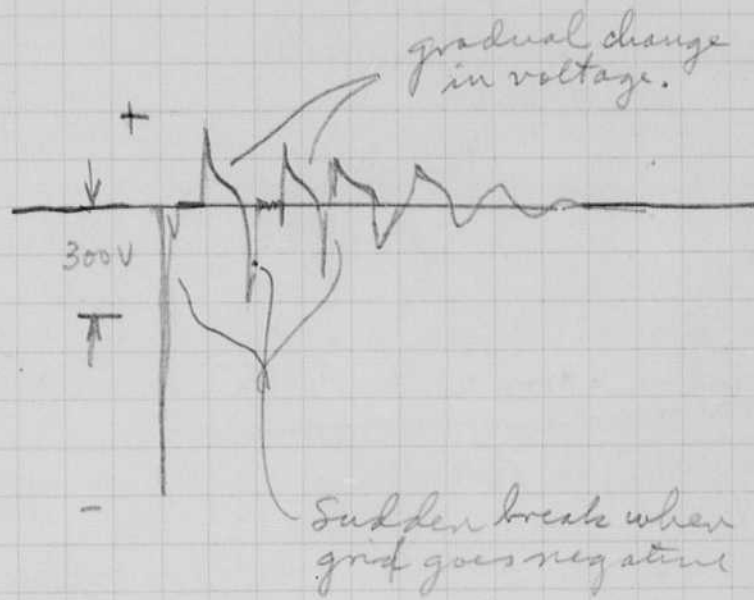 gradual change
in voltage.
+
300V
-
Sudden break when
grid goes negative